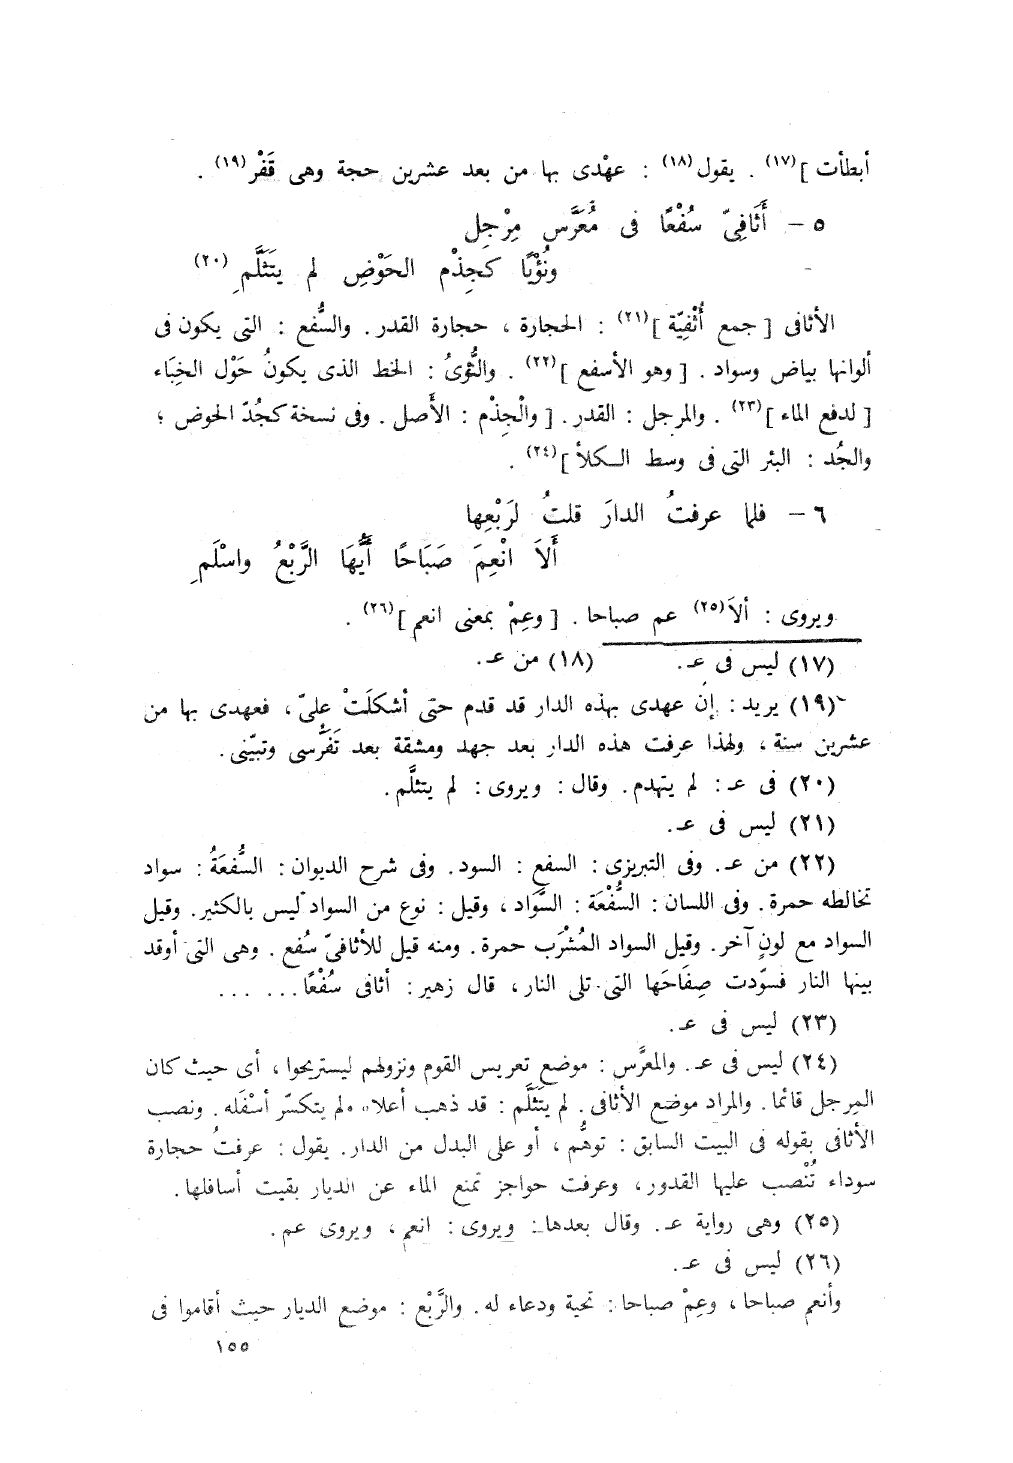 أبطأت ](١٧) . يقول(١٨) : عهْدى بها من بعد عشرين حجة وهى قَفْر(١٩) .
٥ – أَثَافِىّ سُفْعًا فى مُعَرَّس مِرْجلِ
ونُؤْيًا كجِذْم الحَوْضِ لم يتَثَلَّمِ (٢٠)
الأثافى [ جمع أُثْفِيّة ](٢١) : الحجارة ، حجارة القدر . والسُّفع : التى يكون فى
ألوانها بياض وسواد . [ وهو الأسفع ](٢٢) . والنُّؤىُ : الخط الذى يكونُ حَوْل الخِبَاء
[ لدفع الماء ](٢٣) . والمرجل : القدر . [ والْجِذْم : الأَصل . وفى نسخة كجُدّ الحوض ؛
والجُد : البئر التى فى وسط الكلأ ](٢٤) .
٦ – فلما عرفتُ الدارَ قلتُ لرَبْعِها
أَلاَ انْعِمَ صَبَاحًا أَيُّهَا الرَّبْعُ واسْلَمِ
ويروى : ألاَ(٢٥) عم صباحا . [ وعِمْ بمعنى انعم ](٢٦) .
(١٧) ليس فى عـ . (١٨) من عـ .
(١٩) يريد : إن عهدى بهذه الدار قد قدم حتى أشكلَتْ علىّ ، فعهدى بها من
عشرين سنة ، ولهذا عرفت هذه الدار بعد جهد ومشقة بعد تَفَرُّسى وتبيّنى .
(٢٠) فى عـ : لم يتهدم . وقال : ويروى : لم يتثلَّم .
(٢١) ليس فى عـ .
(٢٢) من عـ . وفى التبريزى : السفع : السود . وفى شرح الديوان : السُّفعَةُ : سواد
تخالطه حمرة . وفى اللسان : السُّفْعَة : السَّواد ، وقيل : نوع من السواد ليس بالكثير . وقيل
السواد مع لونٍ آخر . وقيل السواد المُشْرَب حمرة . ومنه قيل للأثافىّ سُفع . وهى التى أوقد
بينها النار فسوّدت صِفَاحَها التى تلى النار ، قال زهير : أثافى سُفْعًا ... ...
(٢٣) ليس فى عـ .
(٢٤) ليس فى عـ . والمعرَّس : موضع تعريس القوم ونزولهم ليستريحوا ، أى حيث كان
المِرجل قائما . والمراد موضع الأثافى . لم يتَثَلَّم : قد ذهب أعلاه ولم يتكسّر أسْفَله . ونصب
الأثافى بقوله فى البيت السابق : توهُّم ، أو على البدل من الدار . يقول : عرفتُ حجارة
سوداء تُنْصب عليها القدور ، وعرفت حواجز تمنع الماء عن الديار بقيت أسافلها .
(٢٥) وهى رواية عـ . وقال بعدها : ويروى : انعم ، ويروى عم .
(٢٦) ليس فى عـ .
وأنعم صباحا ، وعِمْ صباحا : تحية ودعاء له . والرَّبْع : موضع الديار حيث أقاموا فى
١٥٥